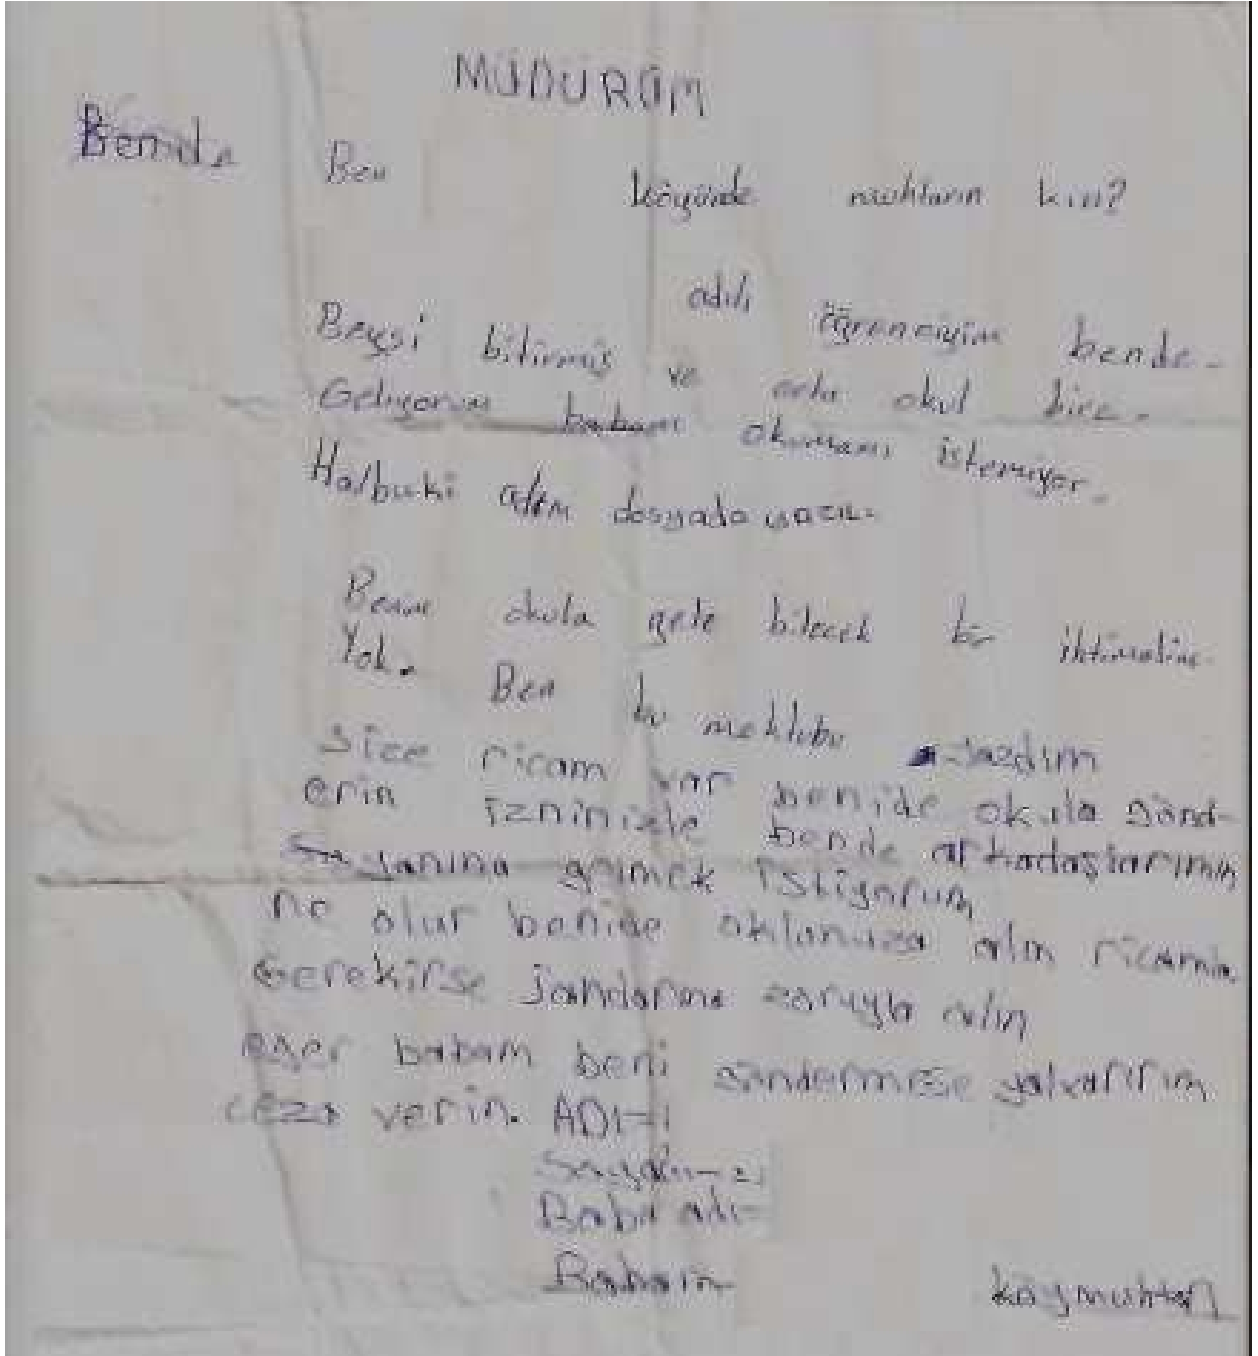 MÜDÜRÜM
Bende Ben köyünde muhtarın kızı?
adılı öğrenciyim bende-
Beşsi bitirmiş ve orta okul bire-
Geliyorum babam okumamı istemiyor-
Halbuki adım dosyada yazılı-
Benim okula gele bilecek bir ihtimalim-
Yok. Ben bu mektubu yazdım
size ricam var benide okula gönd-
erin izninizle bende arkadaşlarımın
yanına gelmek istiyorum
ne olur benide aklınıza alın ricamla
Gerekirse Jandarma zoruyla alın
eğer babam beni göndermese yalvarırım
ceza verin. ADI=
Soyadı=
Baba adı=
Babam köymuhtarı